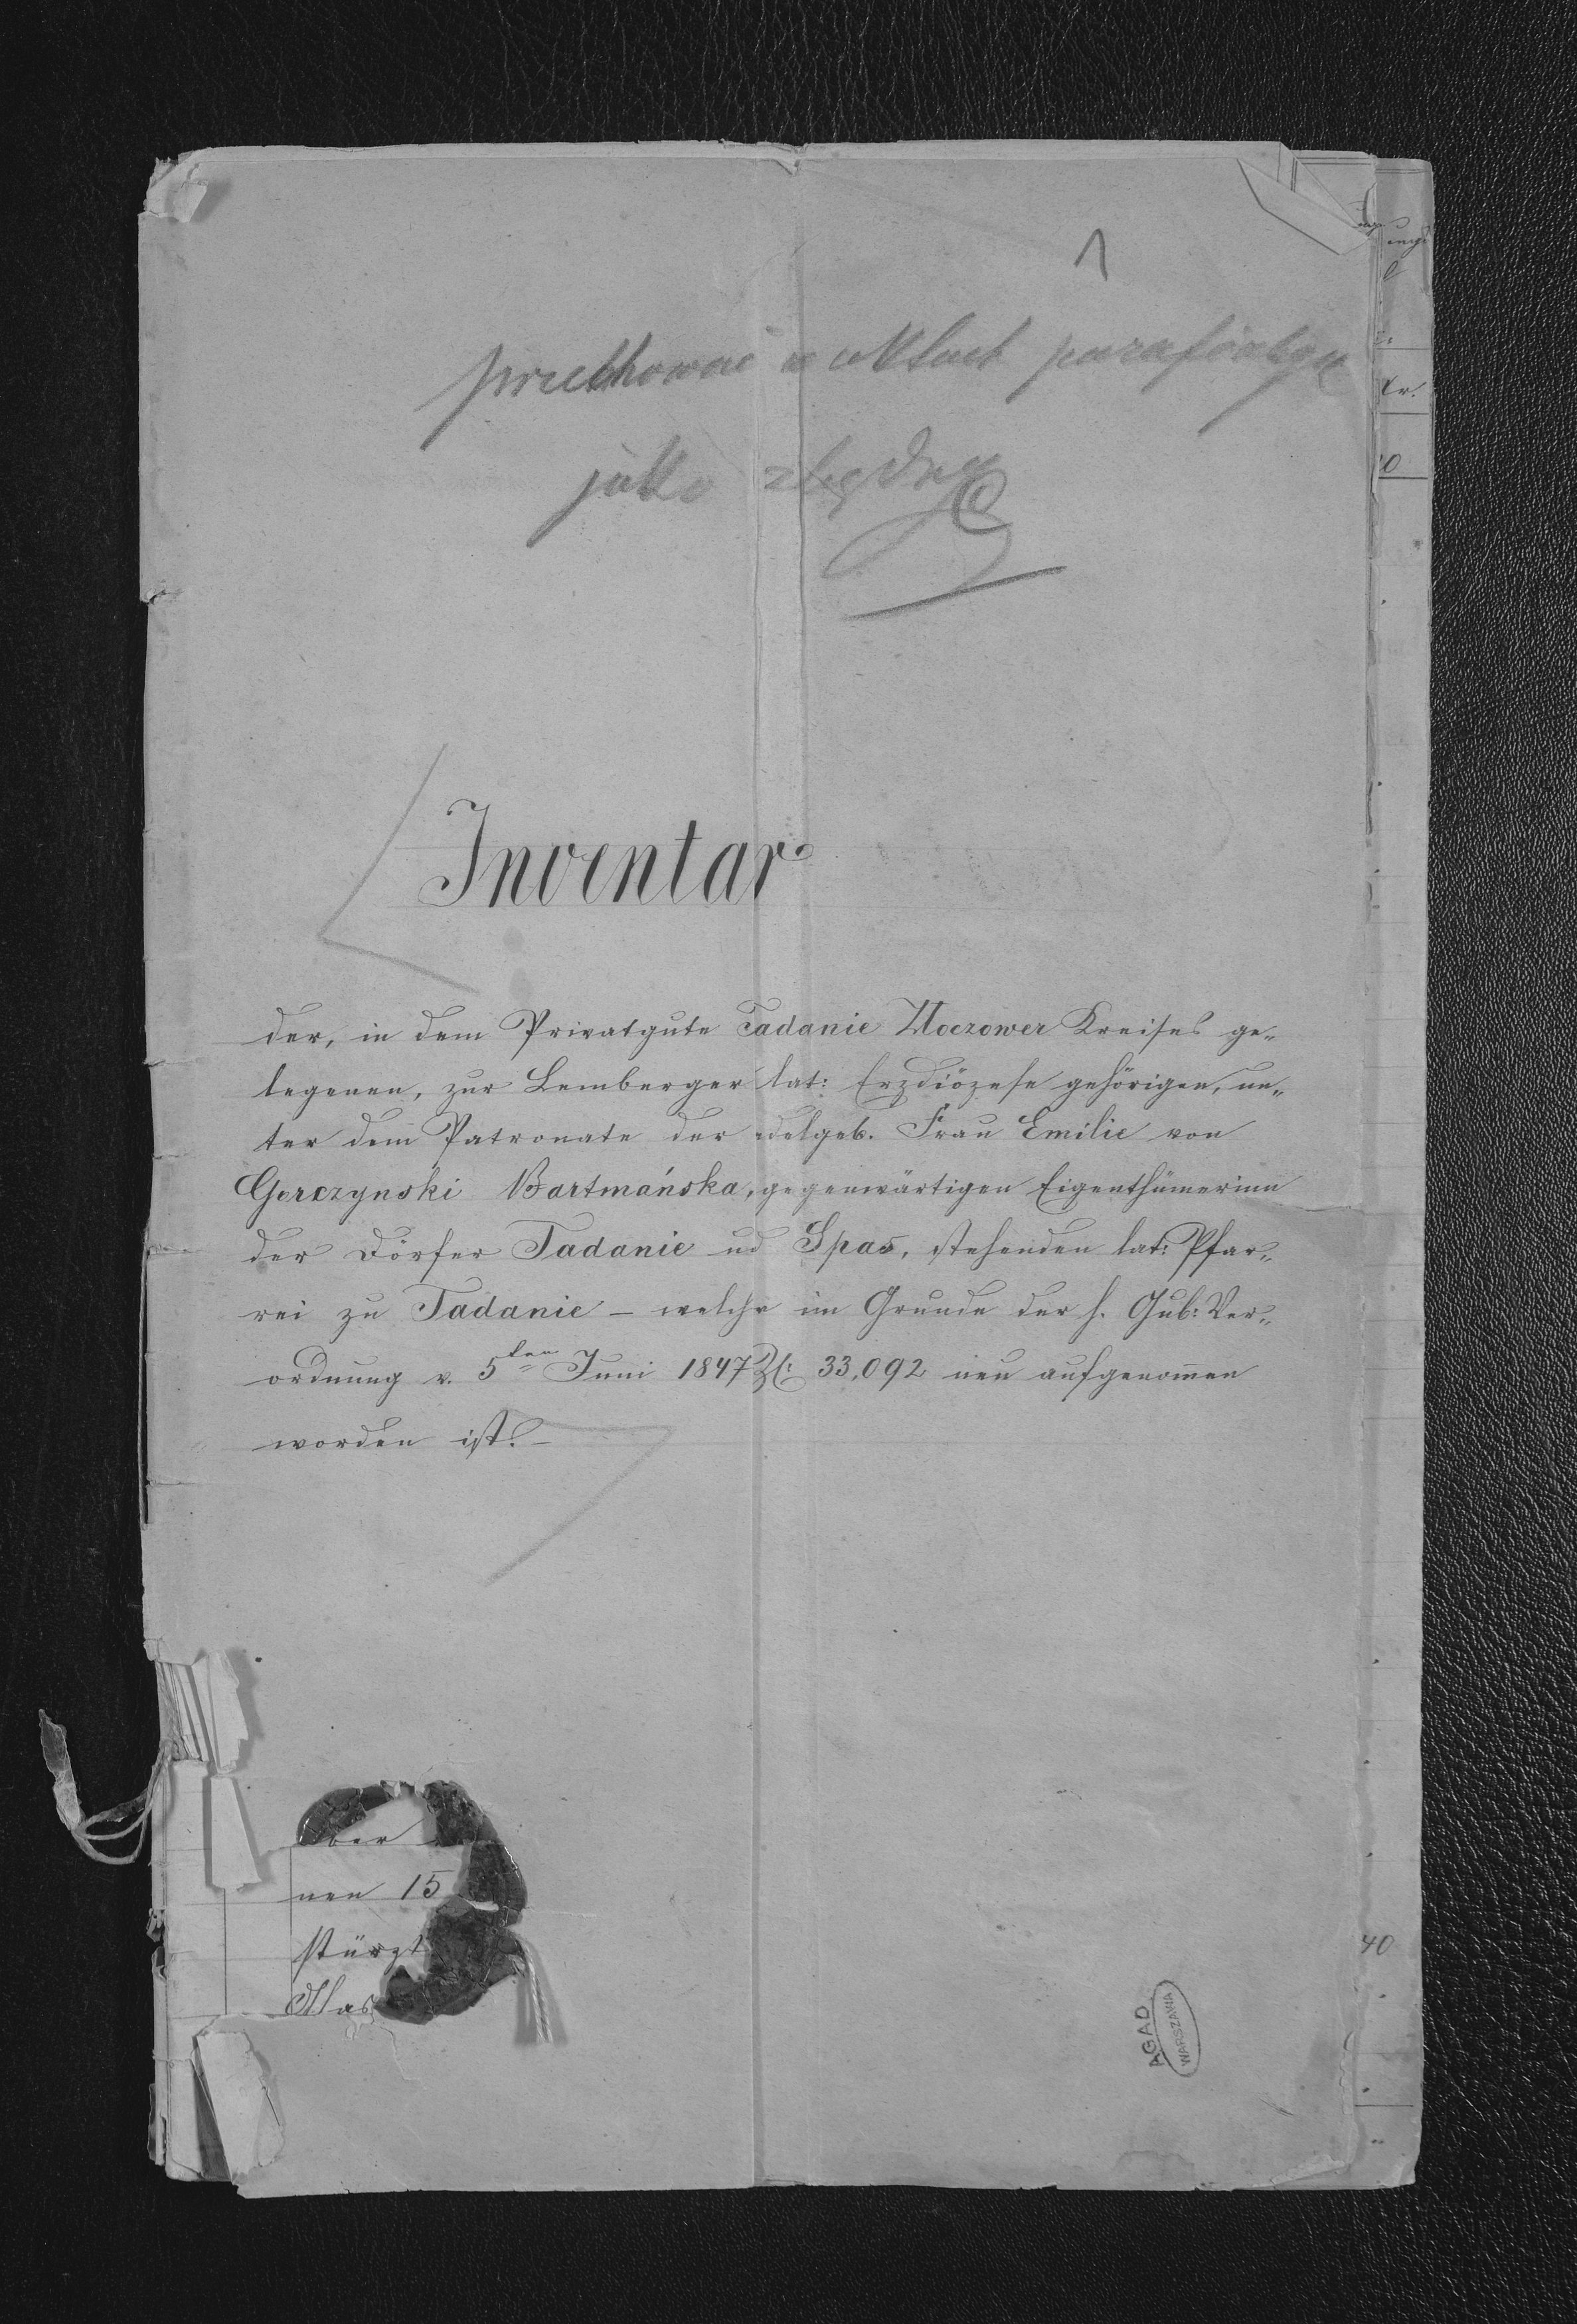 1
przechować w aktach parafialnych
jako zbędny
Inventar
der, in dem Privatgute Tadanie Złoczower Kreises ge-
legenen, zur Lemberger lat: Erzdiözese gehörigen, un-
ter dem Patronate der edelgeb. Frau Emilie von
Gorczynski Bartmańska, gegenwärtigen Eigenthümerinn
der Dörfer Tadanie ud Spas, stehenden lat: Pfar-
rei zu Tadanie – welche im Grunde der h. Gub: Ver-
ordnung v. 5ten Juni 1847 Zl: 33,092 neu aufgenommen
worden ist. –
ber
nen 15
stürzt
Mas
40
AGAD
WARSZAWA